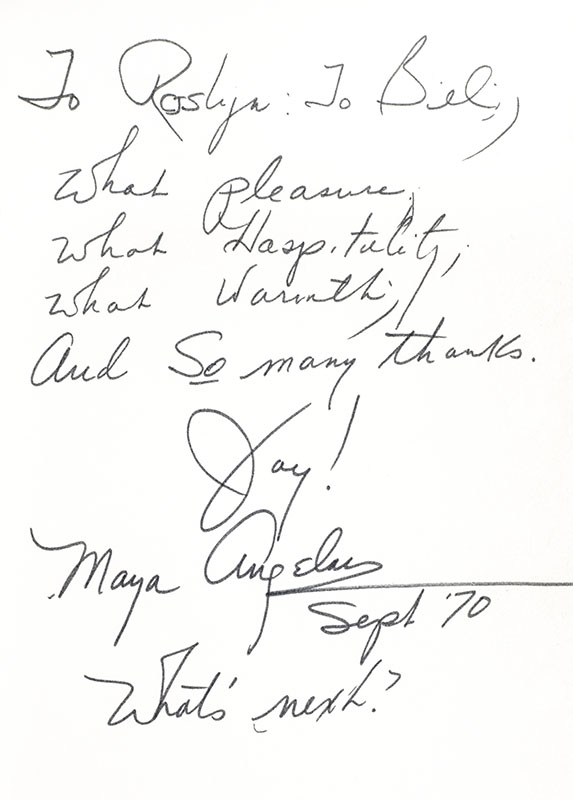 To Roslyn: To Bill,
What pleasure,
What Hospitality,
What Warmth,
And So many thanks.
Joy!
Maya Angelou
Sept '70
What's next?